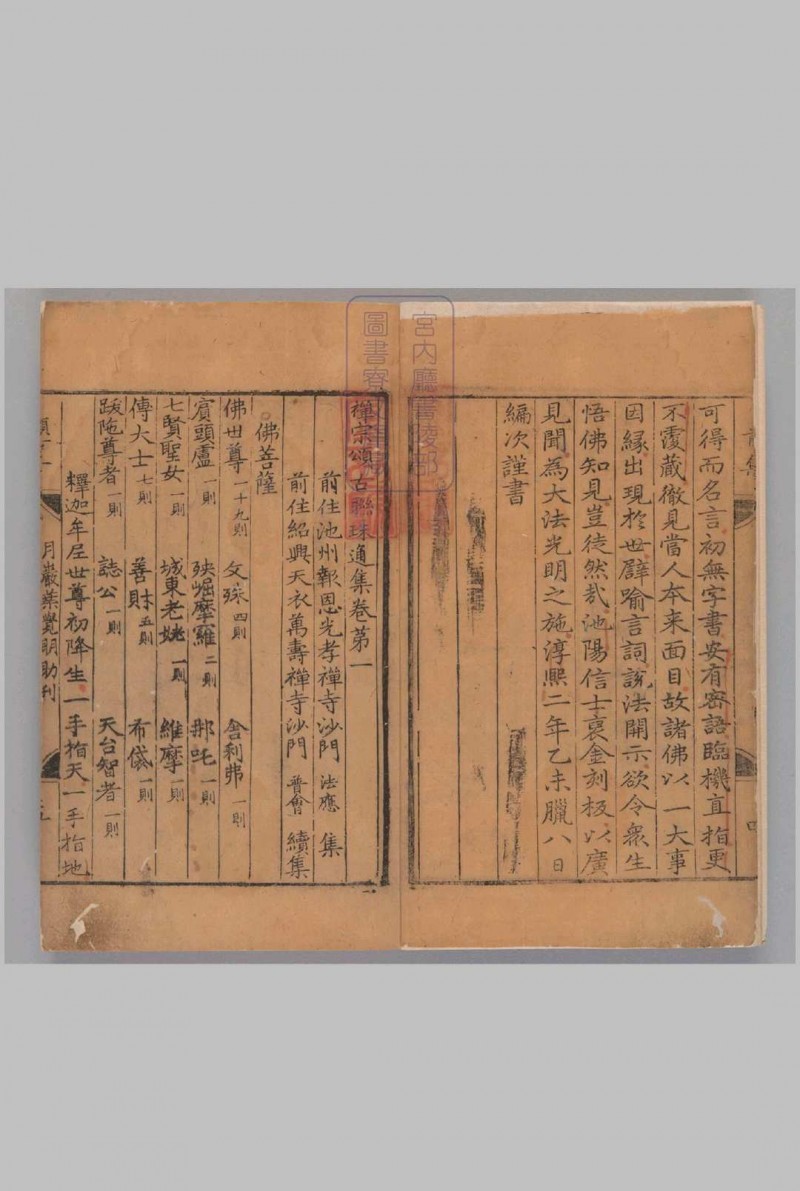 可得而名言初無字書安有密語臨機直指更
不覆藏徹見當人本来面目故諸佛以一大事
因縁出現於世譬喻言詞說法開示欲令衆生
悟佛知見豈徒然㢤池陽信士裒金刻板以廣
見聞為大法光明之施淳熙二年乙未臘八日
編次謹書
宮内廳書陵部
圖書寮
禪宗頌古聯珠通集卷第一
前住池州報恩光孝禪寺沙門 法應 集
前住紹興天衣萬壽禪寺沙門 普會 續集
佛菩薩
佛世尊一十九則 文殊四則 舍利弗一則
賓頭盧一則 殃崛摩羅二則 那吒一則
七賢聖女一則 城東老姥一則 維摩一則
傅大士七則 善財五則 布袋一則
跋陁尊者一則 誌公一則 天台智者一則
釋迦牟尼世尊初降生一手指天一手指地
月巖葉覺明助刋